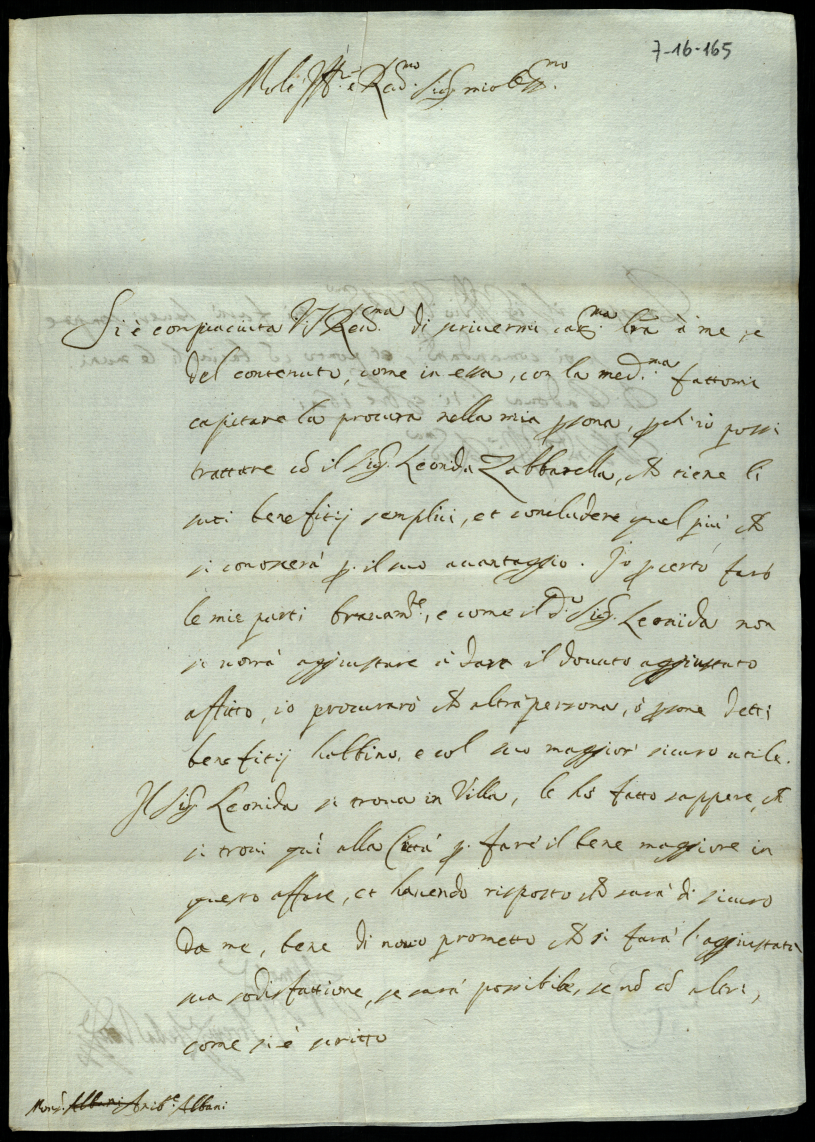 7-16-165
Molt' Ill.re e Rev.mo Sig. mio Oss.mo
Si è compiaciuta V.S. Rev.ma di scrivermi car.ma l'ra à me, se
del contenuto, come in essa, con la med.ma fattomi
capitare la procura nella mia p̱sona, p̱ch' io possi
trattare cō il Sig. Leonida Zabbarella, ch̄ tiene li
suoi benefitij semplici, et concludere quel più, ch̄
si conoscerà p̱ il suo auantaggio. Io p̱ certo farò
le mie parti brauam.te, e come il d.o Sig. Leonida non
si uorrà aggiustare à dare il douuto aggiustato
affitto, io procurarò ch̄ altra persona, ò p̱sone detti
benefitij habbino, e col suo maggior sicuro utile.
Il Sig. Leonida si troua in Villa, le hò fatto sappere, ch̄
si troui quì alla Città p̱ fare il bene maggiore in
questo affare, et hauendo risposto ch̄ sarà di sicuro
da me, bene di nouo prometto ch̄ si farà l'aggiustata
sua sodisfattione, se sarà possibile, se nō cō altri,
come si è scritto
Mons. Albani Anib.e Albani